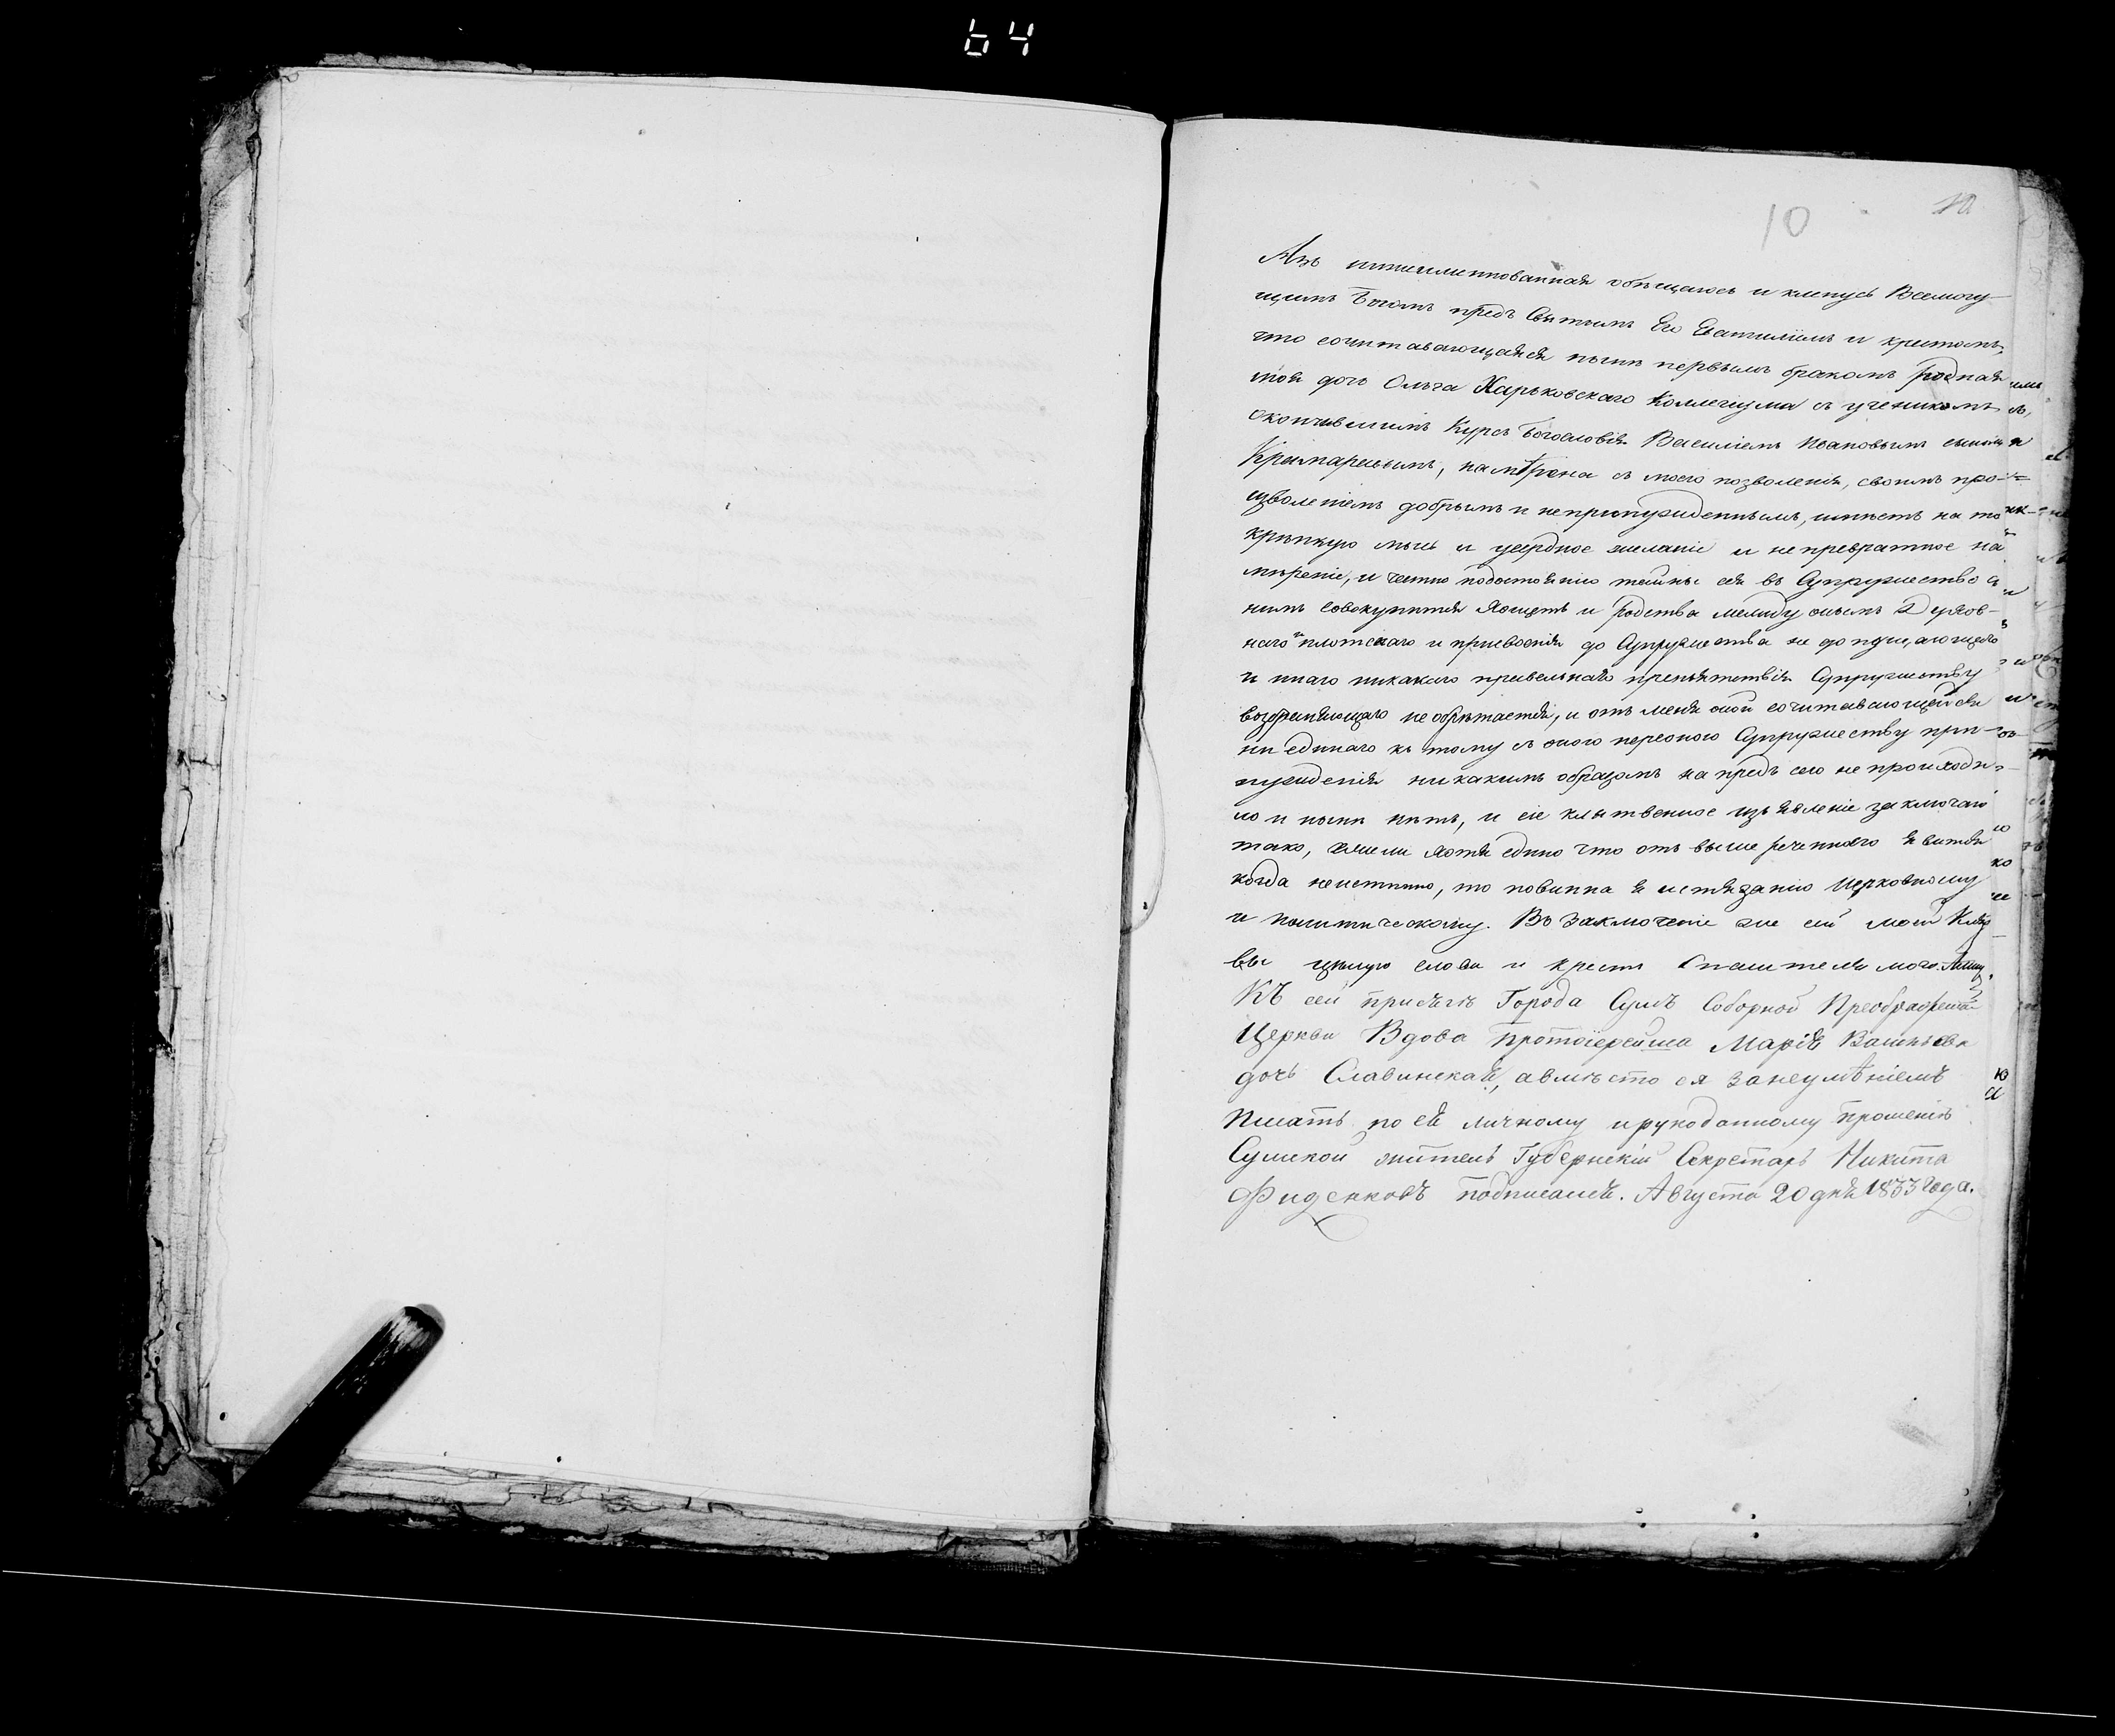 64
10
10
Азъ нижеименнованная обѣщаюсь и кленусь Всемогу-
щимъ Богомъ предъ Святымъ Его Евангилiемъ и крестомъ,
что сочитавающаяся нынѣ первымъ бракомъ родная
моя дочь Ольга Харьковскаго Коллегiума съ ученикомъ
окончившимъ Курсъ Богословiя Василiемъ Ивановымъ сыномъ
намѣрена съ моего позволенiя, своимъ про-
изволенiемъ добрымъ и непринужденнымъ, имѣетъ на то
крѣпкую мысль и усердное желанiе и не превратное на
мѣренiе, и честно подостоянiю тайны сея въ Супружество съ
нимъ совокупится хощетъ и родства между онымъ Духов-
наго и плотскаго и присвоенiя до Супружества не допущающаго
и инаго никакаго правельнаго препятствiя Супружеству
возбраняющаго не обрѣтается, и отъ меня оной сочитавающейся
ни единаго къ тому съ оного персоного Супружеству при-
нужденiя никакимъ образомъ на предъ сего не происходи-
ло и нынѣ нѣтъ, и сiе клятвенное изъявленiе заключаю
тако, ежели хотя едино что отъ выше реченнаго явится
когда неистинно, то повинна я истязанiю Церковному
и политическому. Въ заключенiе же сей моей Кля
вы цѣлую слова и крестъ Спасителя моего. Аминь.
Къ сей присягѣ Города Сумъ Соборной Преображен
Церкви Вдова протоiерейша Марiя Васильева
дочь Славинская, авмѣсто ея занеумѣнiемъ
писать по ея личному ирукоданному прошенiю
Сумской житель Губернскiй Секретарь Никита
подписался. Августа 20 дня 1833 года.